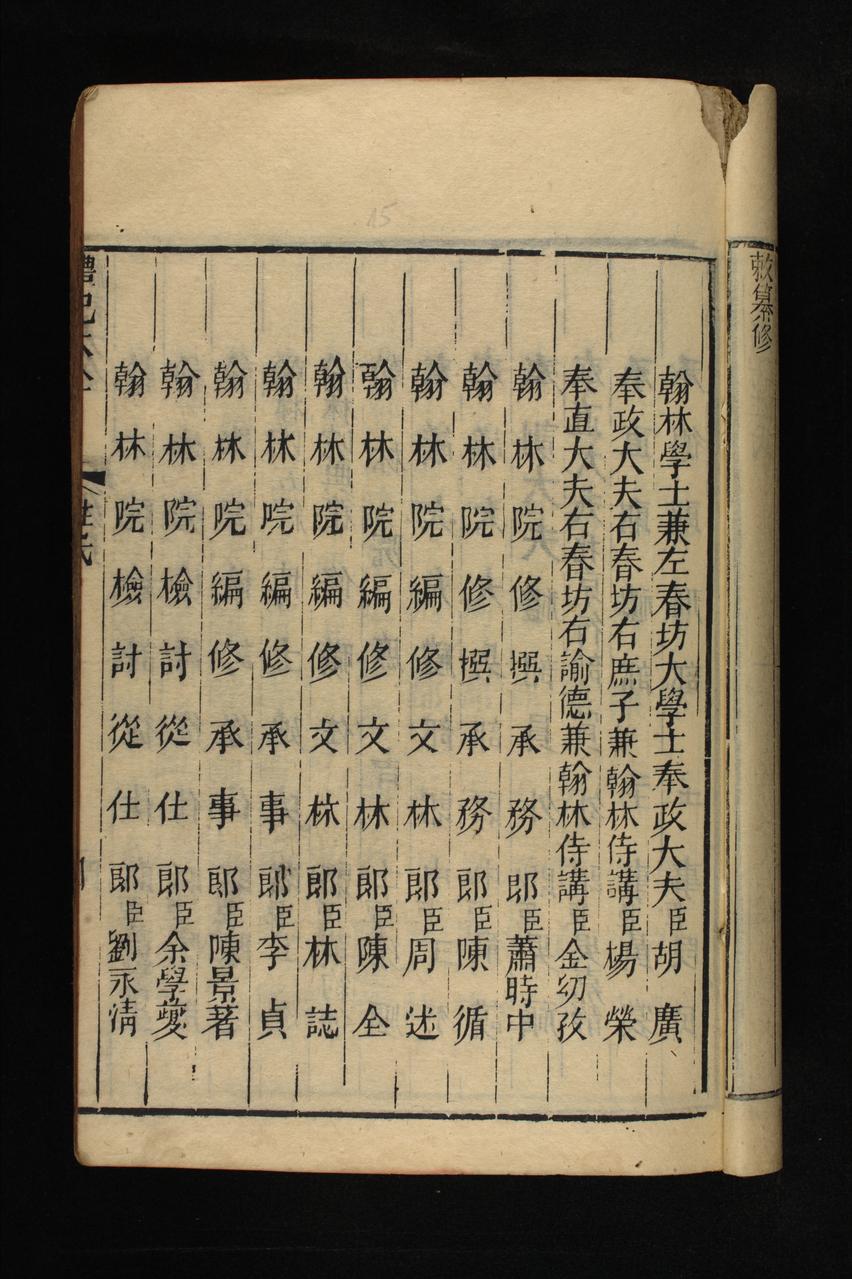 敕纂修
翰林學士兼左春坊大學士奉政大夫臣胡廣
奉政大夫右春坊右庶子兼翰林侍講臣楊榮
奉直大夫右春坊右諭德兼翰林侍講臣金幼孜
翰林院修撰承務郎臣蕭時中
翰林院修撰承務郎臣陳循
翰林院編修文林郎臣周述
翰林院編修文林郎臣陳全
翰林院編修文林郎臣林誌
翰林院編修承事郎臣李貞
翰林院編修承事郎臣陳景著
翰林院檢討從仕郎臣余學夔
翰林院檢討從仕郎臣劉永清
禮記大全 姓氏
15